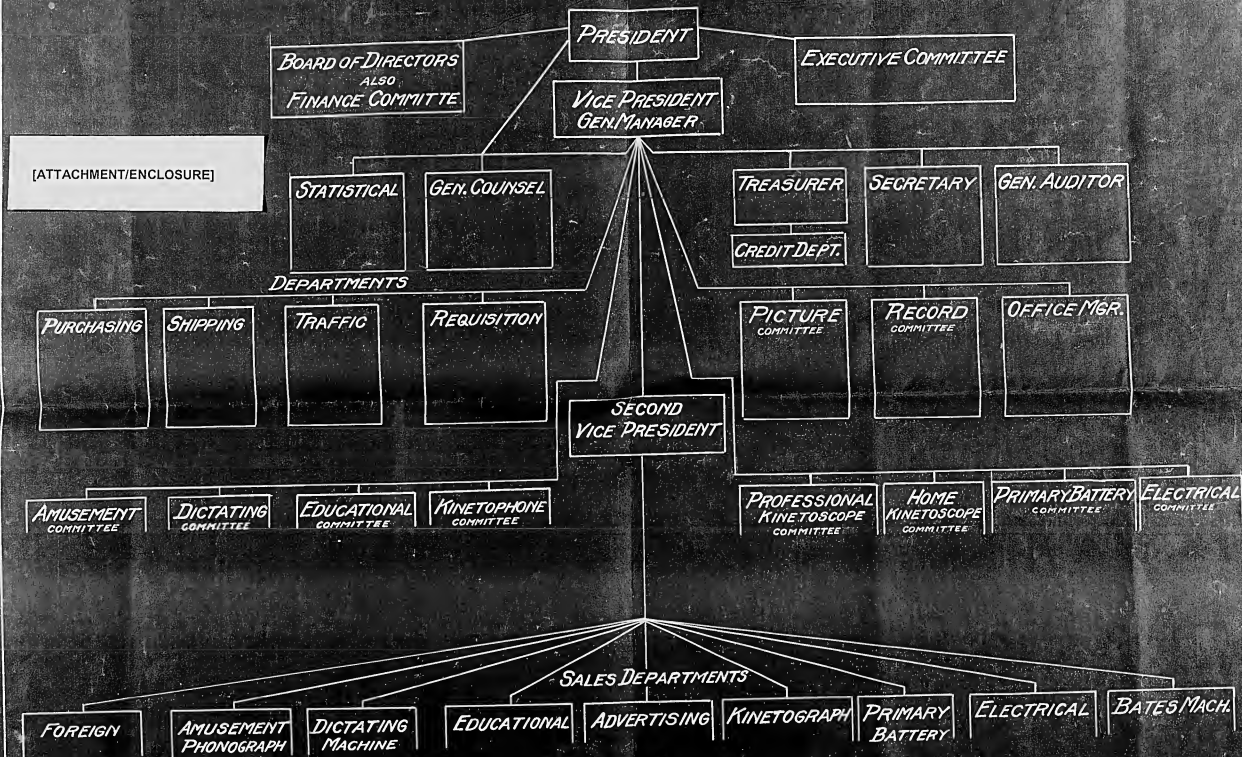 PRESIDENT
BOARD OF DIRECTORS
ALSO
FINANCE COMMITTE
EXECUTIVE COMMITTEE
VICE PRESIDENT
GEN. MANAGER
[ATTACHMENT/ENCLOSURE]
STATISTICAL
GEN. COUNSEL
TREASURER
SECRETARY
GEN. AUDITOR
CREDIT DEPT.
DEPARTMENTS
PURCHASING
SHIPPING
TRAFFIC
REQUISITION
PICTURE
COMMITTEE
RECORD
COMMITTEE
OFFICE MGR.
SECOND
VICE PRESIDENT
AMUSEMENT
COMMITTEE
DICTATING
COMMITTEE
EDUCATIONAL
COMMITTEE
KINETOPHONE
COMMITTEE
PROFESSIONAL
KINETOSCOPE
COMMITTEE
HOME
KINETOSCOPE
COMMITTEE
PRIMARY BATTERY
COMMITTEE
ELECTRICAL
COMMITTEE
SALES DEPARTMENTS
FOREIGN
AMUSEMENT
PHONOGRAPH
DICTATING
MACHINE
EDUCATIONAL
ADVERTISING
KINETOGRAPH
PRIMARY
BATTERY
ELECTRICAL
BATES MACH.